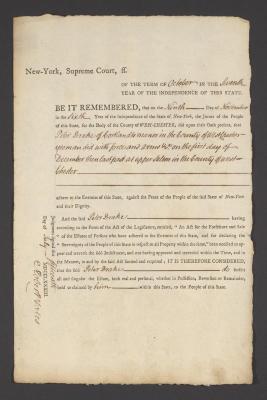 New-York, Supreme Court, ss.
OF THE TERM OF October IN THE Seventh
YEAR OF THE INDEPENDENCE OF THIS STATE.
BE IT REMEMBERED, that on the Ninth Day of November
in the Sixth Year of the Independence of the State of New-York, the Jurors of the People
of this State, for the Body of the County of WEST-CHESTER, did upon their Oath present, that
Peter Drake of Cortlandts manor in the County of West Chester
yeoman did with force and arms &c on the first day of
December then last past at upper Salem in the County of west
Chester
adhere to the Enemies of this State, against the Peace of the People of the said State of New-York
and their Dignity.
And the said Peter Drake having
according to the Form of the Act of the Legislature, entitled, "An Act for the Forfeiture and Sale
"of the Estates of Persons who have adhered to the Enemies of this State, and for declaring the
"Sovereignty of the People of this State in respect to all Property within the same," been notified to ap-
pear and traverse the said Indictment, and not having appeared and traversed within the Time, and in
the Manner, in and by the said Act limited and required; IT IS THEREFORE CONSIDERED,
that the said Peter Drake do forfeit
all and singular the Estate, both real and personal, whether in Possession, Reversion or Remainder,
held or claimed by him within this State, to the People of this State.
Judgment signed this
Day of July MDCCLXXXIII.